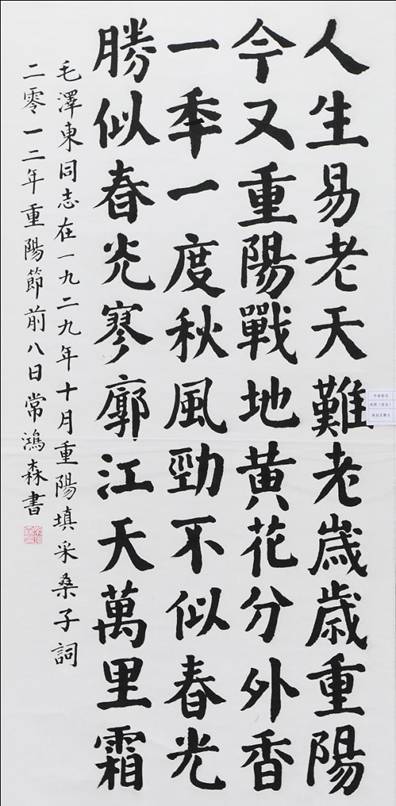 人生易老天難老歲歲重陽
今又重陽戰地黃花分外香
一秊一度秋風勁不似春光
勝似春光寥廓江天萬里霜
毛澤東同志在一九二九年十月重陽填采桑子詞
二零一二年重陽節前八日常鴻森書